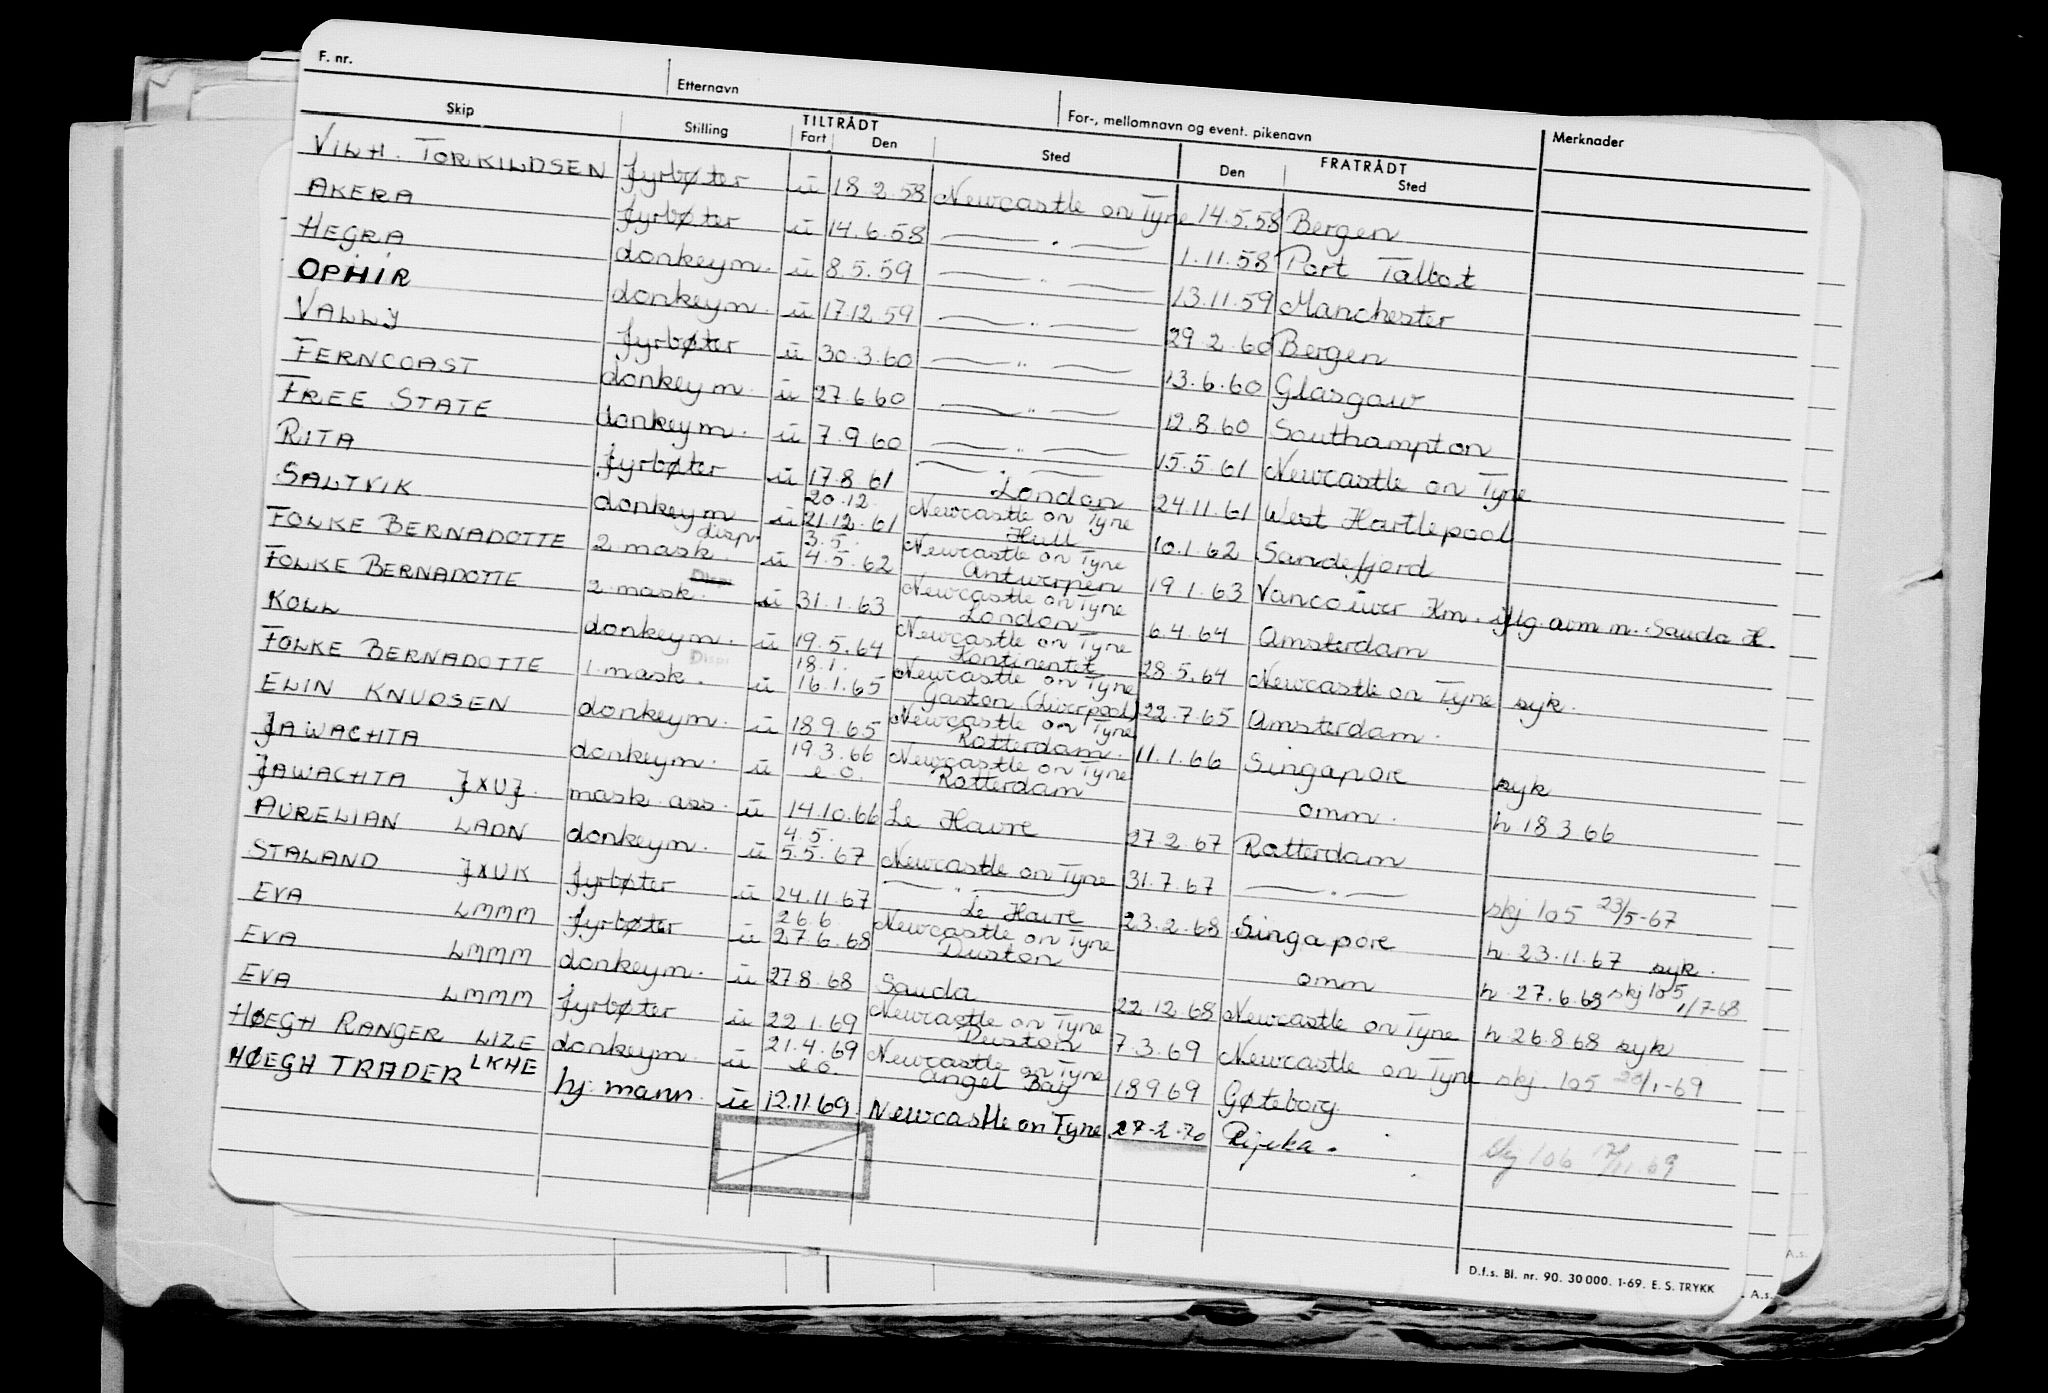 F. nr. Etternavn For-, mellomnavn og event. pikenavn Merknader
Skip Stilling TILTRÅDT Fart Den Sted FRATRÅDT Den Sted
VILH. TORKILDSEN fyrbøter u 18.2.58 Newcastle on Tyne 14.5.58 Bergen
AKERA fyrbøter u 14.6.58 —〃— 1.11.58 Port Talbot
HEGRA donkeym. u 8.5.59 —〃— 13.11.59 Manchester
OPHIR donkeym. u 17.12.59 —〃— 29.2.60 Bergen
VALLY fyrbøter u 30.3.60 —〃— 13.6.60 Glasgow
FERNCOAST donkeym. u 27.6.60 —〃— 12.8.60 Southampton
FREE STATE donkeym. u 7.9.60 —〃— 15.5.61 Newcastle on Tyne
RITA fyrbøter u 17.8.61 —〃— London 24.11.61 West Hartlepool
SALTVIK donkeym u 20.12. 21.12.61 Newcastle on Tyne Hull 10.1.62 Sandefjord
FOLKE BERNADOTTE 2. mask. disp. u 3.5. 4.5.62 Newcastle on Tyne Antwerpen 19.1.63 Vancouver Km. iflg. avm m. Sauda H.
FOLKE BERNADOTTE 2. mask. Disp u 31.1.63 Newcastle on Tyne London 6.4.64 Amsterdam
KOLL donkeym. u 19.5.64 Newcastle on Tyne Kontinentet 28.5.64 Newcastle on Tyne syk.
FOLKE BERNADOTTE 1. mask. Disp u 18.1. 16.1.65 Newcastle on Tyne Gaston (Liverpool) 22.7.65 Amsterdam.
ELIN KNUDSEN donkeym. u 18.9.65 Newcastle on Tyne Rotterdam. 11.1.66 Singapore syk
JAWACHTA donkeym. u 19.3.66 e.o. Newcastle on Tyne Rotterdam omm. h 18 3 66
JAWACHTA JXUJ. mask. ass. u 14.10.66 Le Havre 27.2.67 Rotterdam
AURELIAN LADN donkeym. u 4.5. 5.5.67 Newcastle on Tyne 31.7.67 —〃— skj 105 23/5-67
STALAND JXUK fyrbøter u 24.11.67 —〃— Le Havre 23.2.68 Singapore h. 23.11.67 syk.
EVA LMMM fyrbøter u 26.6. 27.6.68 Newcastle on Tyne Duston omm h. 27.6.68 skj 105 1/7-68
EVA LMMM donkeym. u 27.8.68 Sauda 22.12.68 Newcastle on Tyne h. 26.8 68 syk
EVA LMMM fyrbøter u 22.1.69 Newcastle on Tyne Duston 7.3.69 Newcastle on Tyne skj. 105 20/1-69
HØEGH RANGER LIZE donkeym. u 21.4.69 e.o. Newcastle on Tyne Angel Bay 18 9 69 Gøteborg.
HØEGH TRADER LKHE hj. mann. u 12.11.69 Newcastle on Tyne 27-2-70 Rijeka.
Skj 106 /11.69
D.f.s. Bl. nr. 90. 30 000. 1-69. E. S. TRYKK
A.s.
A.s.